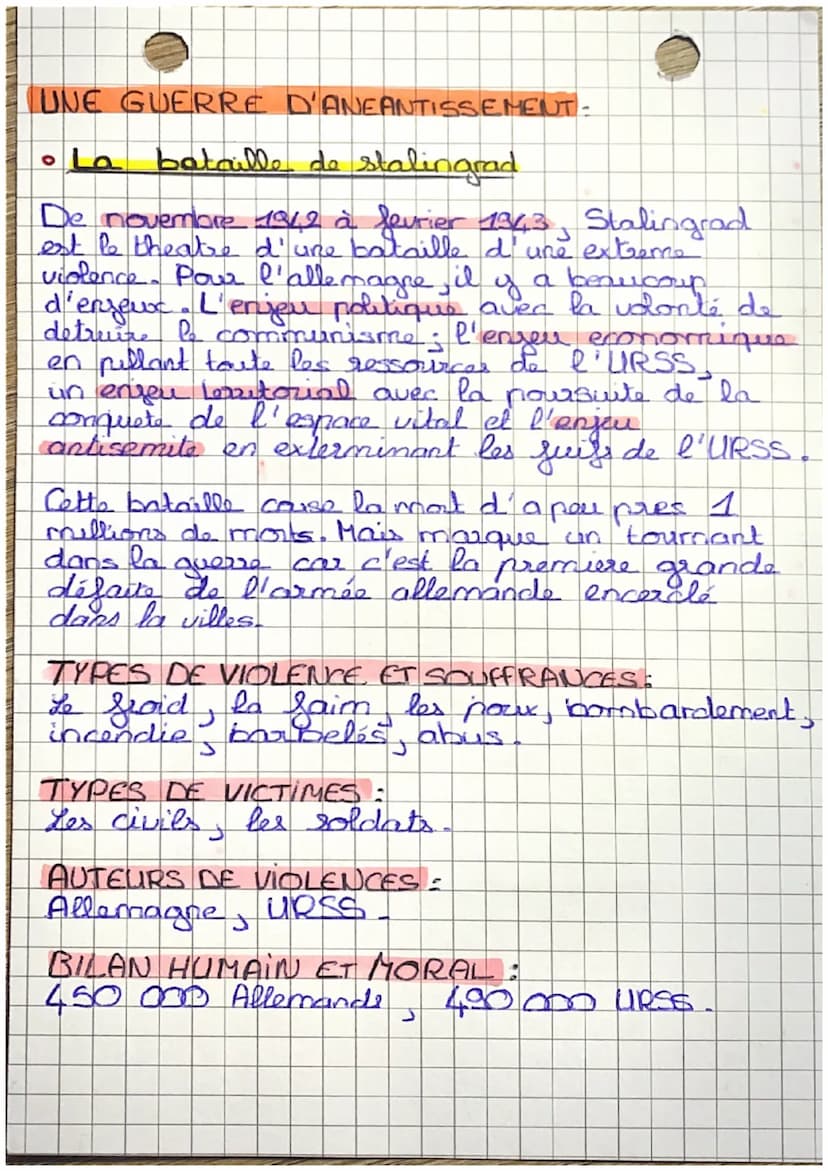 UNE GUERRE D'ANEANTISSEMENT :
• La bataille de stalingrad
De novembre 1942 à fevrier 1943, Stalingrad
est le theatre d'une bataille d'une extreme
violence. Pour l'allemagne, il y a beaucoup
d'enjeux. L'enjeu politique avec la volonté de
detruire le communisme ; l'enjeu economique
en pillant toute les ressources de l'URSS,
un enjeu territorial avec la poursuite de la
conquete de l'espace vital et l'enjeu
antisemite en exterminant les juifs de l'URSS.
Cette bataille cause la mort d'a peu pres 1
millions de morts. Mais marque un tournant
dans la guerre car c'est la premiere grande
défaite de l'armée allemande encerclé
dans la villes.
TYPES DE VIOLENCE ET SOUFFRANCES :
Le froid, la faim, les poux, bombardement,
incendie, barbelés, abus.
TYPES DE VICTIMES :
Les civils, les soldats.
AUTEURS DE VIOLENCES :
Allemagne, URSS.
BILAN HUMAIN ET MORAL :
450 000 Allemands, 490 000 URSS.